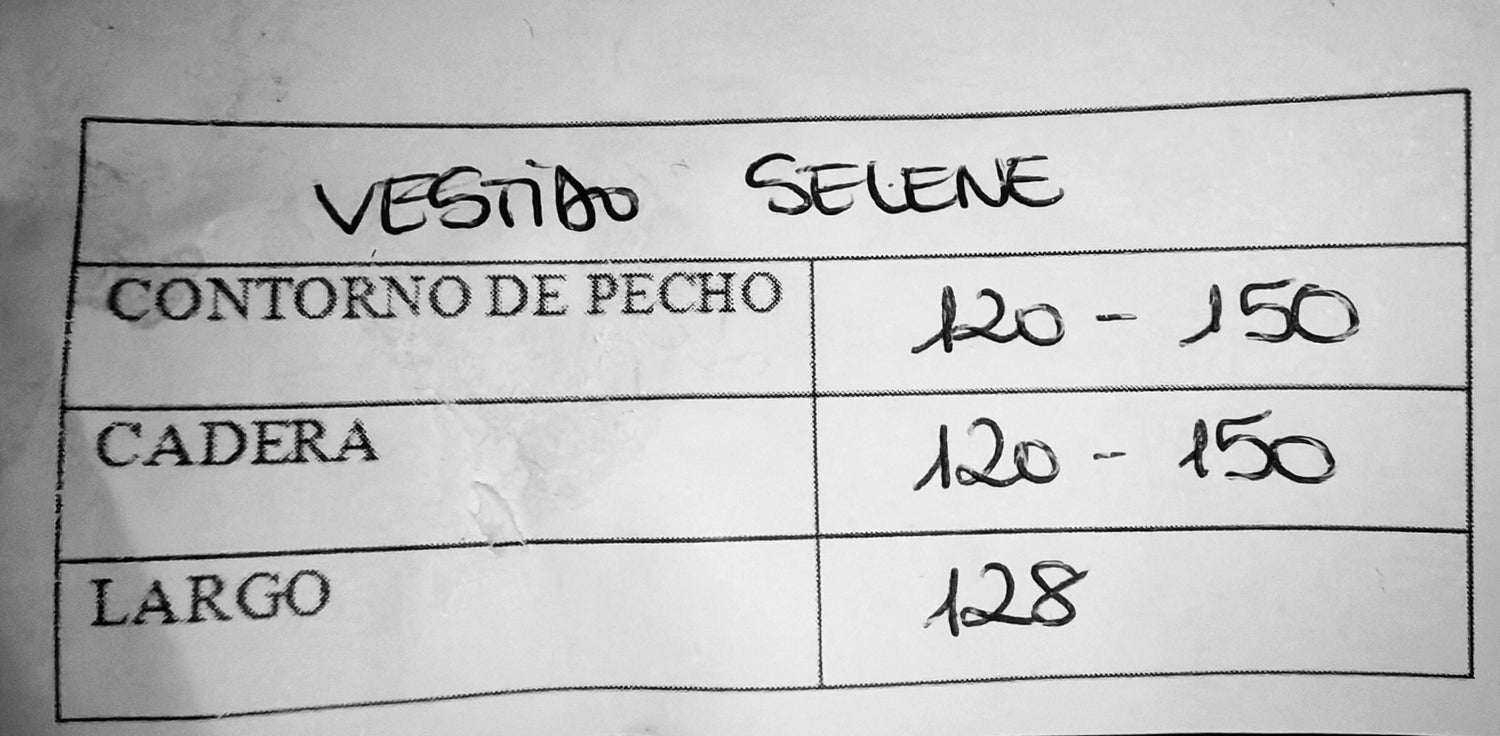 VESTIDO SELENE
CONTORNO DE PECHO 120 - 150
CADERA 120 - 150
LARGO 128